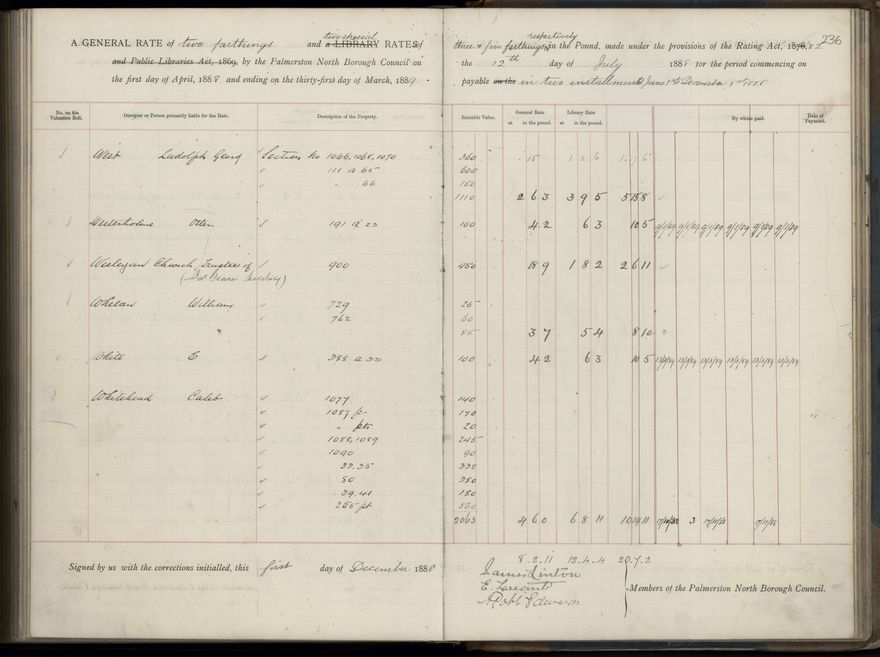 236
two special respectively
A GENERAL RATE of two farthings and a LIBRARY RATES of three & five farthings in the Pound, made under the provisions of the Rating Act, 1876, 82
and Public Libraries Act, 1869, by the Palmerston North Borough Council on the 12th day of July 1888 for the period commencing on
the first day of April, 1888 and ending on the thirty-first day of March, 1889 payable on the in two instalments June 1st & December 1st 1888
No. on the Valuation Roll. Occupier or Person primarily liable for the Rate. Description of the Property. Rateable Value. General Rate at in the pound. Library Rate at in the pound. By whom paid. Date of Payment.
West Ludolph Georg Section No 1066, 1068, 1070 360 15 1 2 6 1 17 6
111 a 65 600
66 150
1110 2 6 3 3 9 5 5 15 8
Westerholme Otten 191 a 23 100 4 2 6 3 10 5 9/1/89 9/1/89 9/1/89 9/1/89 9/1/89 9/1/89
Wesleyan Church Trustees of 900 450 18 9 1 8 2 2 6 11
Whelan William 729 25
762 60
85 3 7 5 4 8 10
White E 388 a 33 100 4 2 6 3 10 5
Whitehead Caleb 1077 140
1087 pt 170
" pts 20
1088, 1089 245
1090 90
33.35 338
80 350
39.41 180
255 pt 530
2063 4 6 0 6 8 11 10 14 11 3
8.2.11 12.4.4 20.7.2
Signed by us with the corrections initialled, this first day of December 1888
James Linton
E. Larcomb
Members of the Palmerston North Borough Council.